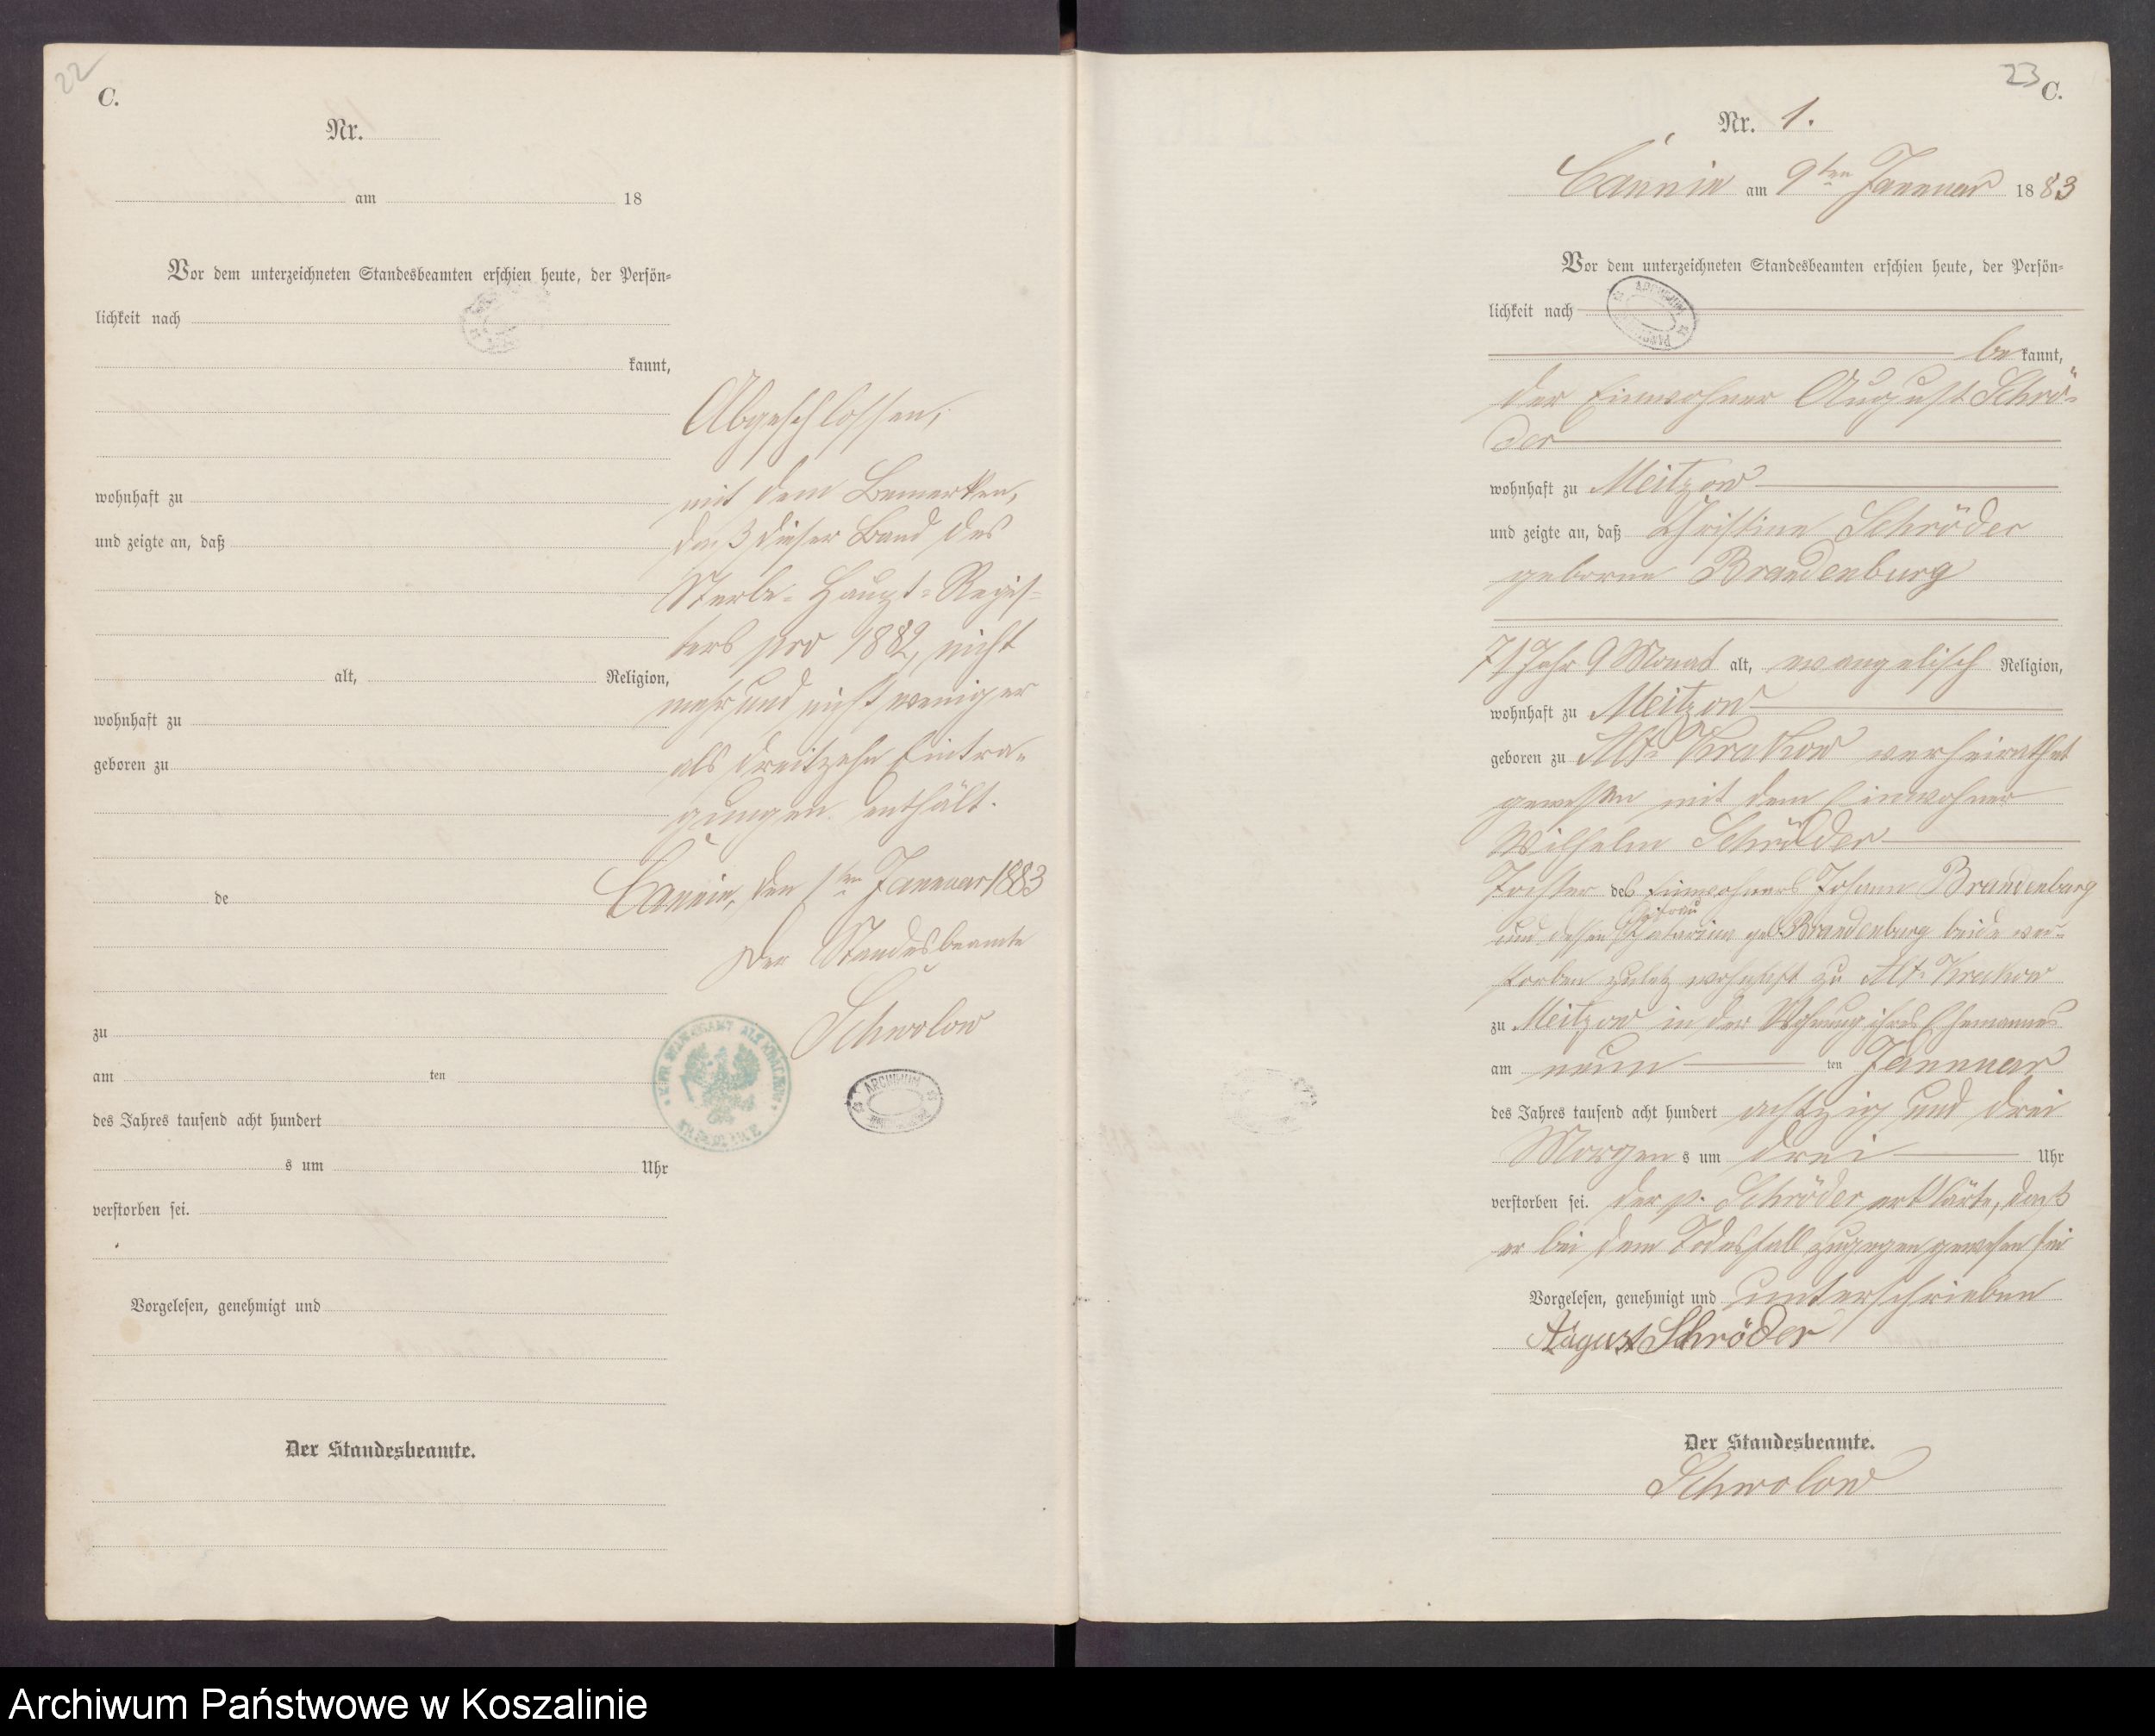 22
C.
Nr.
am 18
Vor dem unterzeichneten Standesbeamten erschien heute, der Persön-
lichkeit nach
kannt,
wohnhaft zu
und zeigte an, daß
alt, Religion,
wohnhaft zu
geboren zu
de
zu
am ten
des Jahres tausend acht hundert
s um Uhr
verstorben sei.
Vorgelesen, genehmigt und
Der Standesbeamte.
Abgeschlossen,
mit dem Bemerken,
daß dieser Band des
Sterbe-Haupt-Regis-
ters pro 1882, nicht
mehr und nicht weniger
als dreitzehn Eintra-
gungen enthält.
Cannin, den 1ten Januar 1883
Der Standesbeamte
Schwolow
ARCHIWUM
23
C.
Nr. 1.
Cannin am 9ten Januar 1883
Vor dem unterzeichneten Standesbeamten erschien heute, der Persön-
lichkeit nach
ARCHIWUM
be kannt,
der Einwohner August Schrö-
der
wohnhaft zu Meitzow
und zeigte an, daß Christine Schröder
geborne Brandenburg
71 Jahr 9 Monat alt, evangelisch Religion,
wohnhaft zu Meitzow
geboren zu Alt-Krakow verheirathet
gewesen mit dem Einwohner
Wilhelm Schröder
Tochter des Einwohners Johann Brandenburg
Ehefrau
und dessen geb. Brandenburg beide ver-
storben zuletz wohnhaft zu Alt-Krakow
zu Meitzow in der Wohnung ihres Ehemannes
am neun ten Januar
des Jahres tausend acht hundert achtzig und drei
Morgen s um drei Uhr
verstorben sei. der p. Schröder erklärte, daß
er bei dem Todesfall zugegen gewesen sei
Vorgelesen, genehmigt und unterschrieben
August Schröder
Der Standesbeamte.
Schwolow
Archiwum Państwowe w Koszalinie